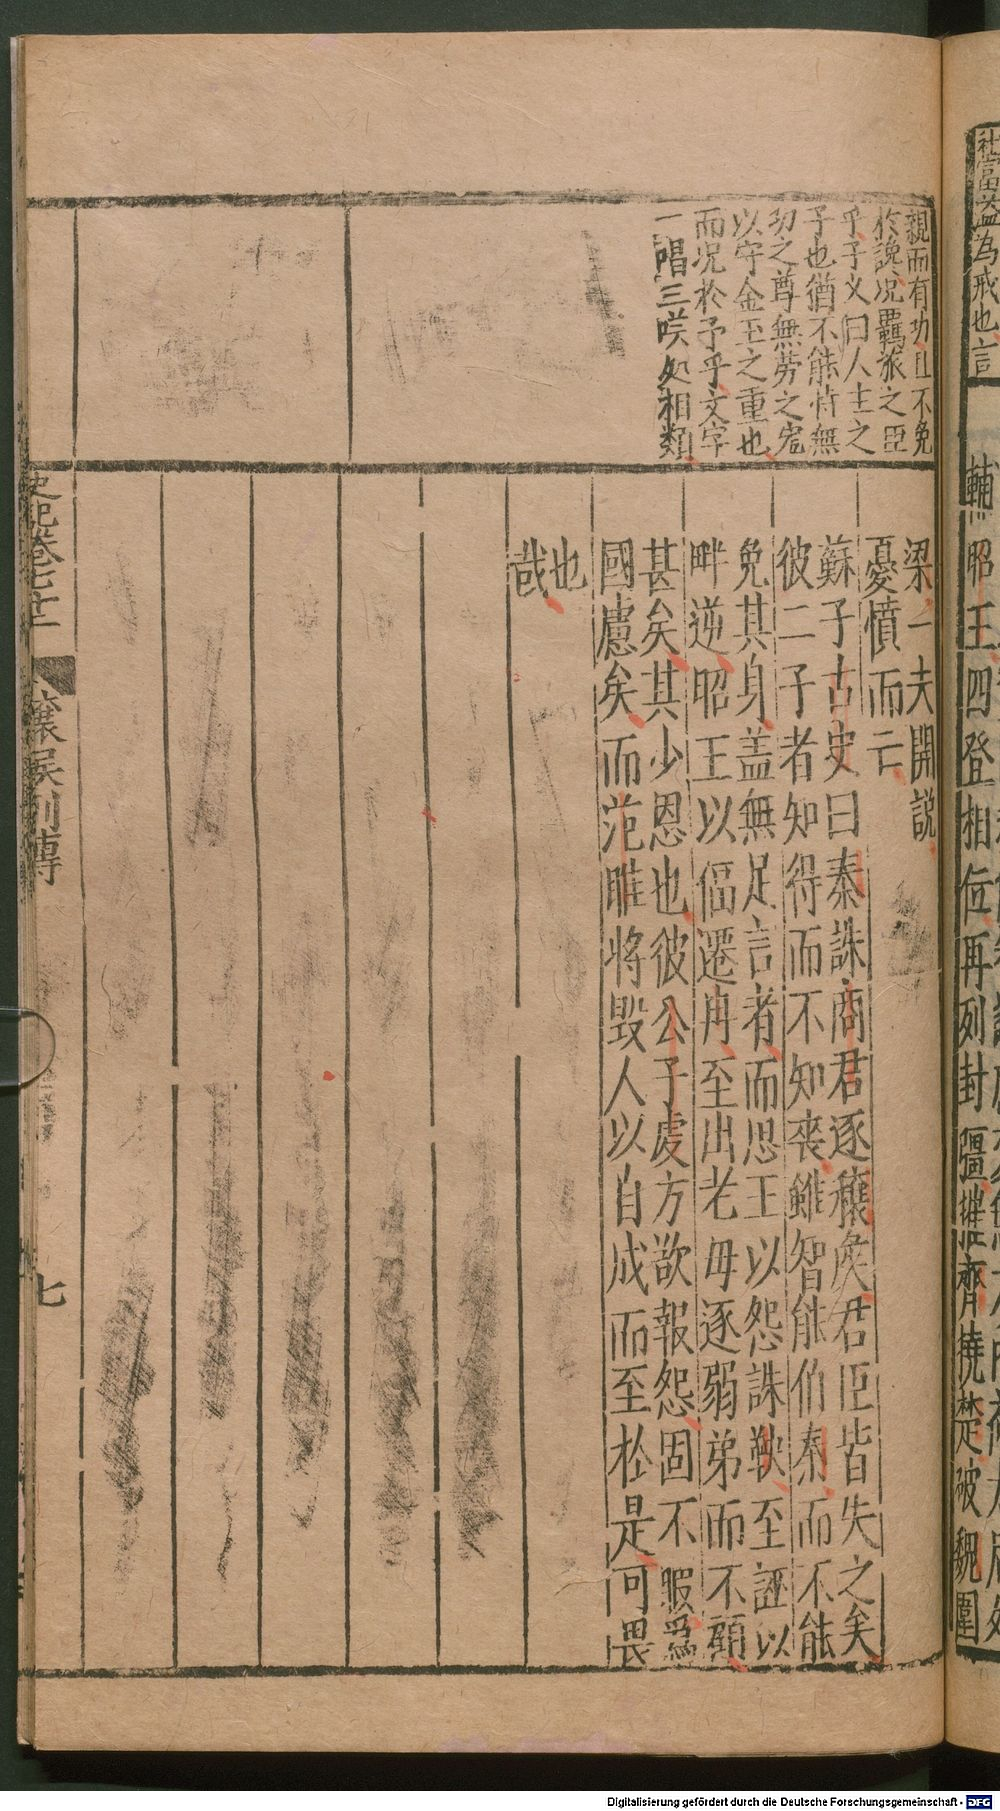 社富益為戒也言
輔昭王四登相位再列封疆摧齊撓楚破魏圍
親而有功且不免
於讒况羈旅之臣
乎子义曰人主之
子也猶不能恃無
功之尊無勞之寵
以守金玉之重也
而况於予乎文字
一唱三咲処相類
梁一夫開説
憂憤而亡
蘇子古史曰秦誅商君逐穰侯君臣皆失之矣
彼二子者知得而不知喪雖智能伯秦而不能
免其身盖無足言者而惠王以怨誅鞅至誣以
畔逆昭王以偪遷冉至出老母逐弱弟而不顧
甚矣其少恩也彼公子虔方欲報怨固不暇爲
國慮矣而范雎将毁人以自成而至於是可畏
也
哉
史記卷七十二
穰侯列傳
七
Digitalisierung gefördert durch die Deutsche Forschungsgemeinschaft - DFG